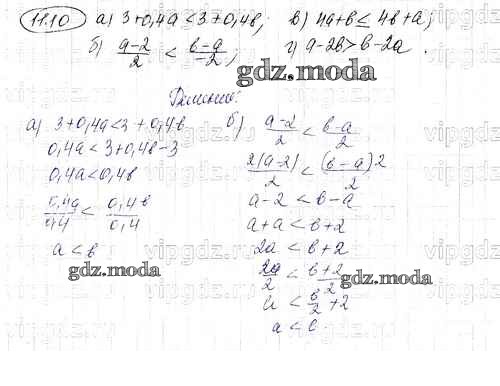 11.10 а) 3+0,4a<3+0,4в; в) 4a+в≤4в+a;
б) (a-2)/2 < (в-a)/-2; г) a-2в>в-2a.
gdz.moda
Решение:
а) 3+0,4a<3+0,4в б) (a-2)/2 < (в-a)/2
0,4a<3+0,4в-3 2(a-2)/2 < (в-a)2/2
0,4a<0,4в a-2<в-a
0,4a/0,4 < 0,4в/0,4 a+a<в+2
a<в 2a<в+2
gdz.moda 2a/2 < (в+2)/2
gdz.moda
a < в/2 + 2
a<в
vipgdz.ru